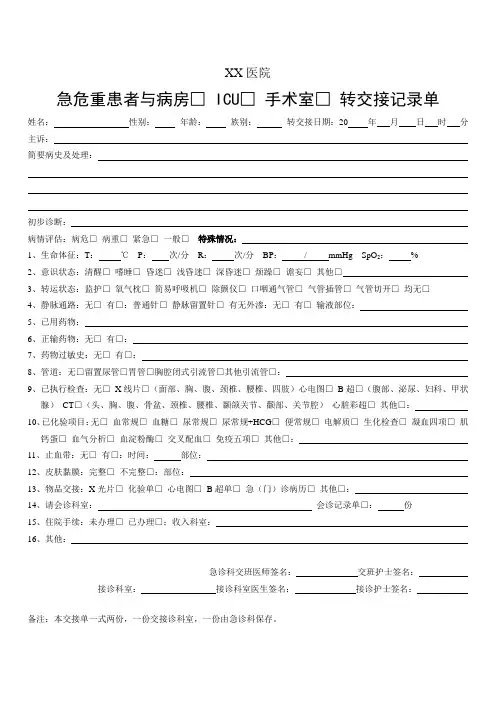 XX 医院
急危重患者与病房□ ICU□ 手术室□ 转交接记录单
姓名： 性别： 年龄： 族别： 转交接日期：20 年 月 日 时 分
主诉：
简要病史及处理：
初步诊断：
病情评估：病危□ 病重□ 紧急□ 一般□ 特殊情况：
1、生命体征：T： ℃ P： 次/分 R： 次/分 BP： / mmHg SpO₂： %
2、意识状态：清醒□ 嗜睡□ 昏迷□ 浅昏迷□ 深昏迷□ 烦躁□ 谵妄□ 其他□
3、转运状态：监护□ 氧气枕□ 简易呼吸机□ 除颤仪□ 口咽通气管□ 气管插管□ 气管切开□ 均无□
4、静脉通路：无□ 有□：普通针□ 静脉留置针□ 有无外渗：无□ 有□ 输液部位：
5、已用药物：
6、正输药物：无□ 有□：
7、药物过敏史：无□ 有□：
8、管道：无□留置尿管□胃管□胸腔闭式引流管□其他引流管□：
9、已执行检查：无□ X线片□（面部、胸、腹、颈椎、腰椎、四肢）心电图□ B超□（腹部、泌尿、妇科、甲状
腺） CT□（头、胸、腹、骨盆、颈椎、腰椎、颞颌关节、颞部、关节腔） 心脏彩超□ 其他□：
10、已化验项目：无□ 血常规□ 血糖□ 尿常规□ 尿常规+HCG□ 便常规□ 电解质□ 生化检查□ 凝血四项□ 肌
钙蛋□ 血气分析□ 血淀粉酶□ 交叉配血□ 免疫五项□ 其他□：
11、止血带：无□ 有□：时间： 部位：
12、皮肤黏膜：完整□ 不完整□：部位：
13、物品交接：X光片□ 化验单□ 心电图□ B超单□ 急（门）诊病历□ 其他□：
14、请会诊科室： 会诊记录单□： 份
15、住院手续：未办理□ 已办理□：收入科室：
16、其他：
急诊科交班医师签名： 交班护士签名：
接诊科室： 接诊科室医生签名： 接诊护士签名：
备注：本交接单一式两份，一份交接诊科室，一份由急诊科保存。